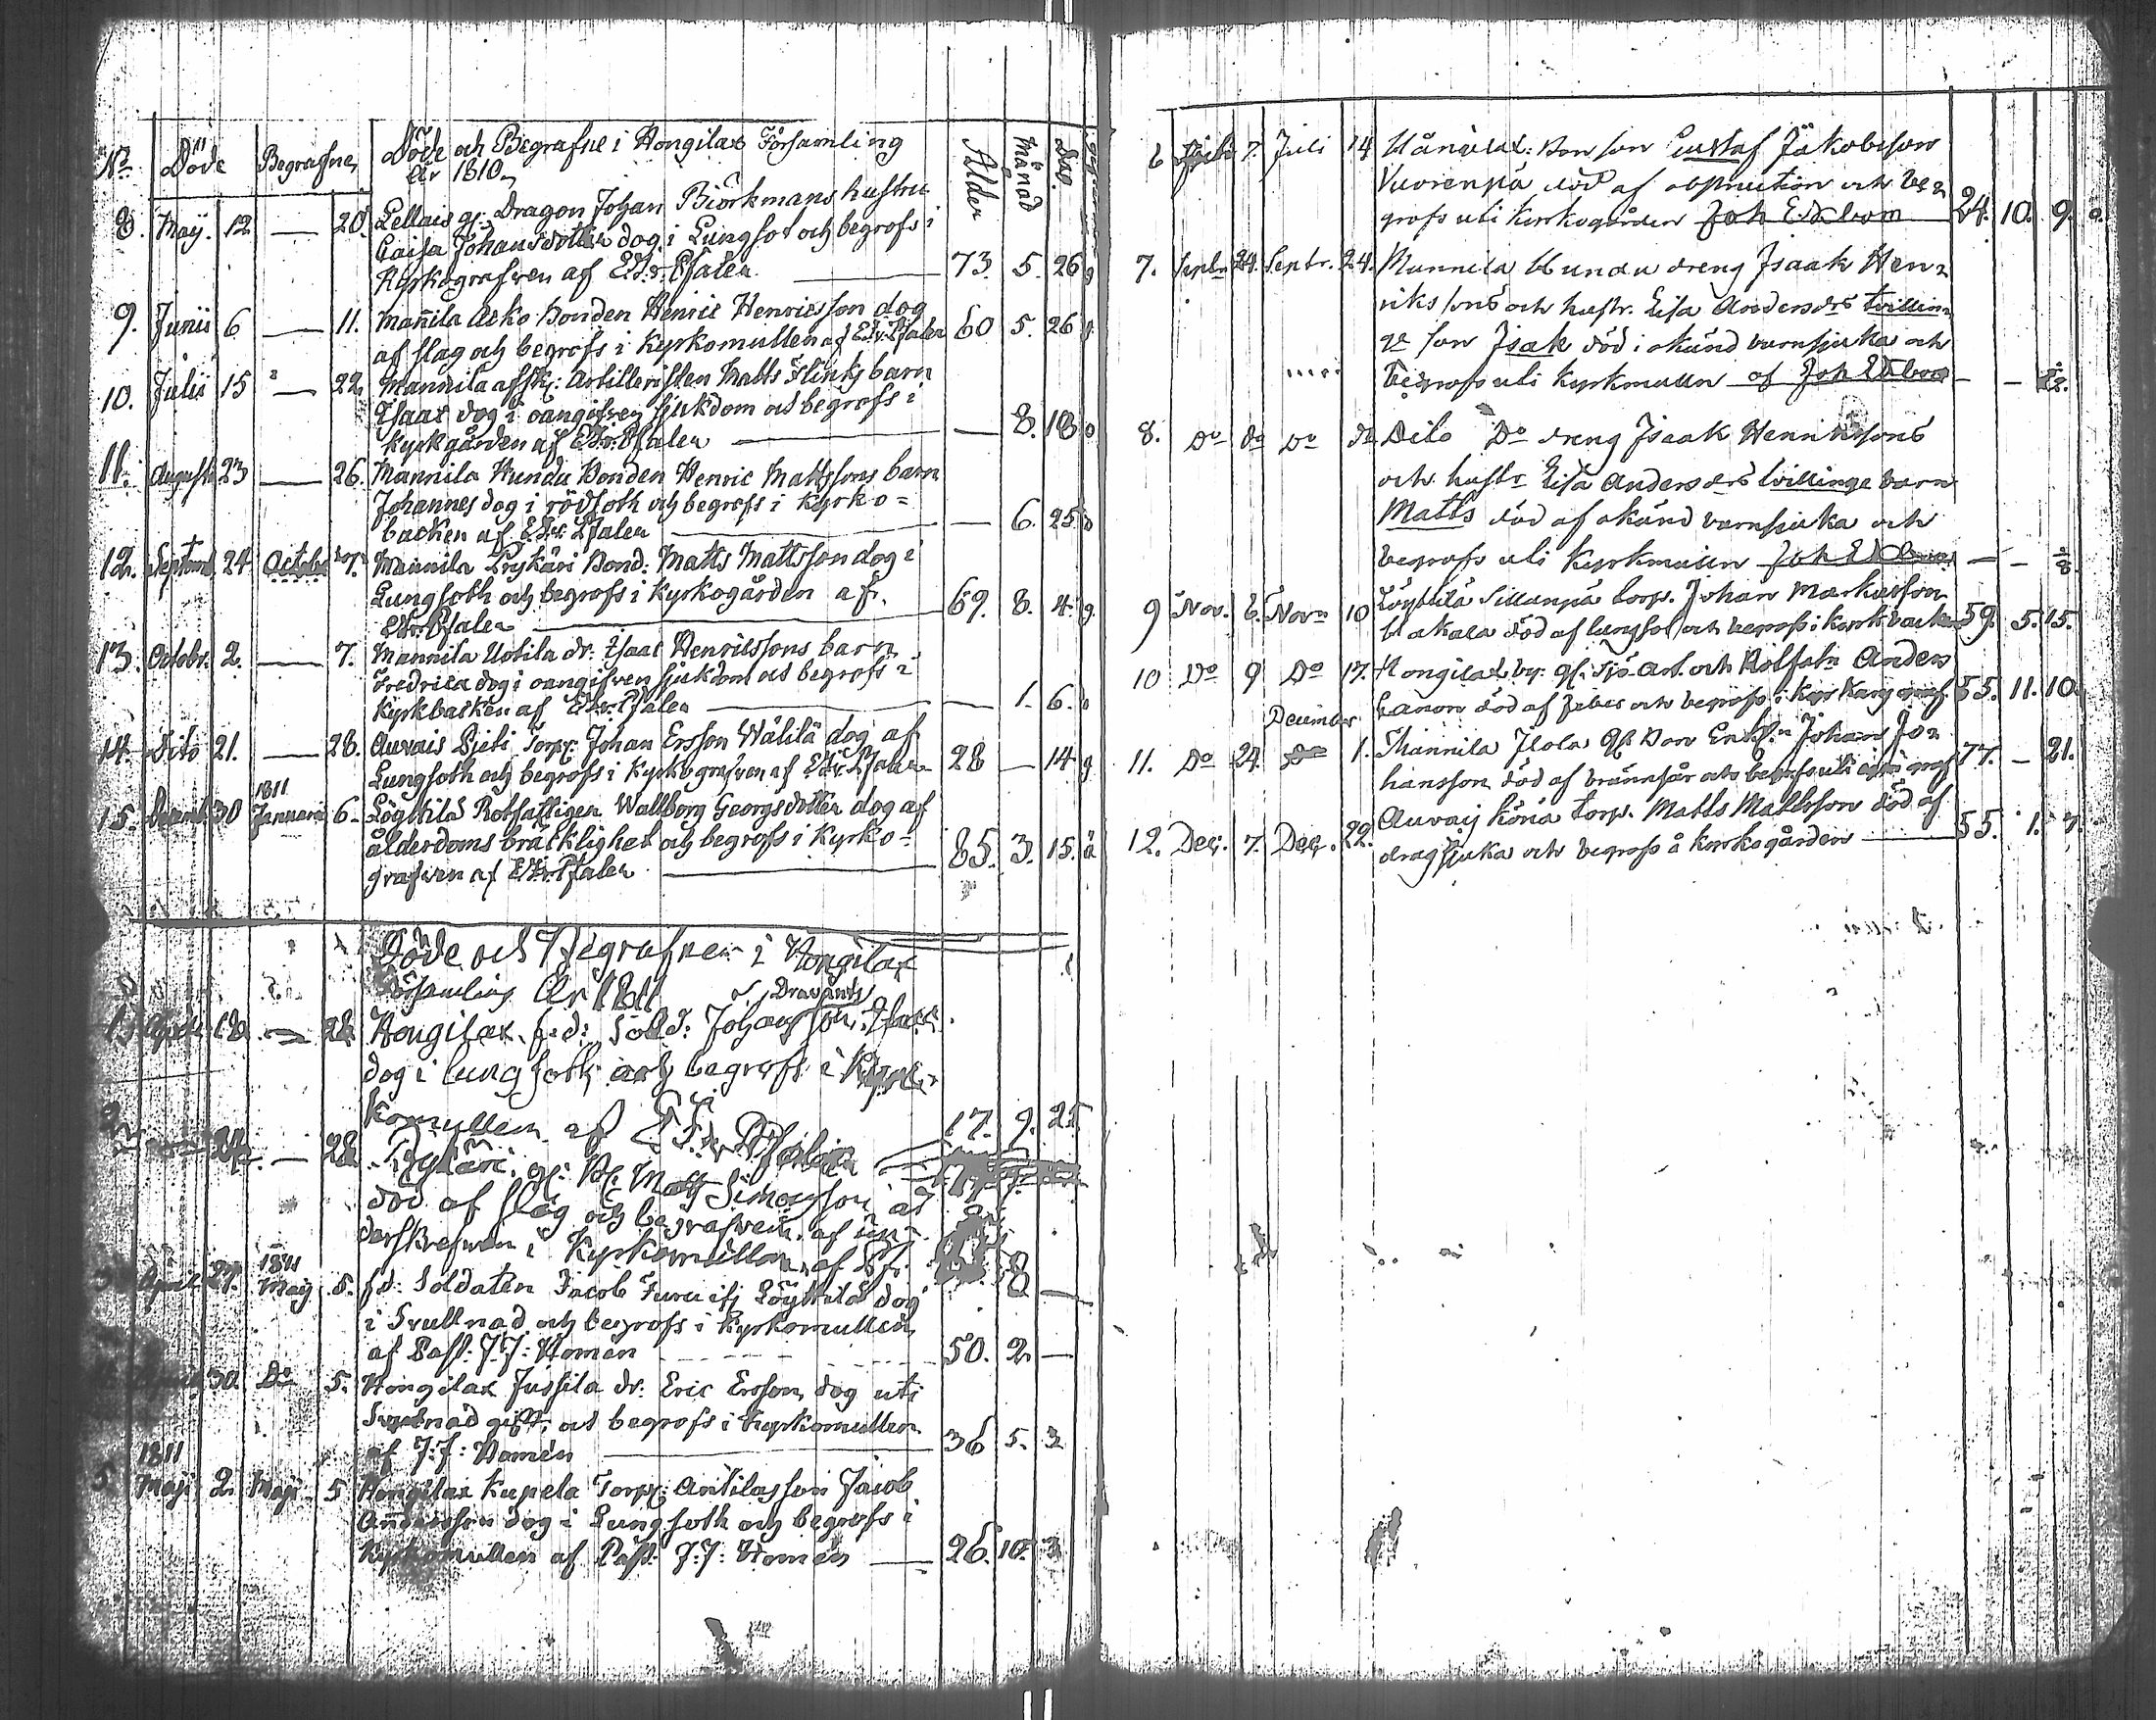 No Döde Begrafne Döde och Begrafne i Hongilax Församling Ålder Månad Dag
År 1810.
8. Maij. 12 — 20. Lellais gf: Dragon Johan Biörkmans hustru
Caisa Johansdotter dog i Lungsot och begrofs i
Kyrkografven af EdvrPfaler — 73. 5. 26 g
9. Junii 6 — 11. Mañila Asko Bonden Henric Henricsson dog
af slag och begrofs i Kyrkomullen af Edvr Pfaler 60 5. 26 g
10. Julii 15 — 22 Mannila afsk: Artilleristen Matts Flinks barn
Isaac dog i oangifven sjukdom och begrofs i
Kyrkgården af EdvrPfaler — — 8. 18 o
11. Augusti 23 — 26. Mannila Hundu Bonden Henric Mattssons barn
Johannes dog i rödsoth och begrofs i Kyrko=
backen af Edvr Pfaler — — 6. 25 o
12. Septemb 24 Octobr 7. Mannila Prykäri Bond: Matts Mattsson dog i
Lungsoth och begrofs i Kyrkogården af
EdvrPfaler — 69. 8. 4. g
13. Octobr. 2. — 7. Mannila Uotila dr. Isaac Henricssons barn
Fredrica dog i oangifven sjukdom och begrofs i
Kyrkbacken af EdvrPfaler — — 1. 6. o
14. Dito 21. — 28. Auvais Pjeti Torp: Johan Ersson Wälilä dog af
Lungsoth och begrofs i Kyrkografven af Edvr Pfaler 28 — 14 g
1811
15. Decemb 30 Januarii 6. Löyttilä Rotfattigen Wallborg Georgsdotter dog af
ålderdoms bräcklighet och begrofs i Kyrko=
grafven af EdvrPfaler — 85. 3. 15. ä
Döde och Begrafne i Hongilax
Församling År 1811
Dravants
1 April 18 — 28 Hongilax f. d: Sold: Johan son Isac
dog i lungsoth och begrofs i Kyr
komullen af Edvr Pfaler 17. 9. 25
2 — 28 Prykäri gf: Bf. Matts Simonsson
död af slag och begrafven af un=
derskrefven i Kyrkomullen af 8 —
1811
April 27. Maij 5. fd: Soldaten Jacob Furu ifr Löyttilä dog
i Svullnad och begrofs i Kyrkomullen
af Past: J:J: Homén 50. 2 —
30. Do 5. Hongilax Jussila dr. Eric Ersson dog uti
Svulnad gift, och begrofs i Kyrkomullen
af J:J: Homén — 36 5. 3
1811
5 Maji 2. Maji 5 Hongilax Kupela Torp: Antilas son Jacob
Andersson dog i Lungsoth och begrofs i
Kyrkomullen af Past: J:J: Homén — 26. 10. 3
6 Julii 7. Juli 14 Bon son Gustaf Jakobsson
Vuorenpä död af obstruction och be=
grofs uti Kyrkogården Joh Edbom 24. 10. 9. o.
7. Septr 24. Septr. 24. Mannila Hundu dreng Isaak Hen=
riks sons och hustr. Lisa Anders drs tvillin
ge son Isak död i okänd barnsjuka och
begrofs uti Kyrkmullen af Joh Edbom — —
8. Do do Do do Dito Do dreng Isaak Henrikssons
och hustr Lisa Andersdrs tvillinge barn
Matts död af okänd barnsjuka och
begrofs uti Kyrkmullen Joh Edbom — —
9 Nov. 6. Novr 10 Löyttilä Sillanpä torp. Johan Markusson
död af lungsot och begrofs i Kyrkbacken 59. 5. 15.
10 Do 9 Do 17. Hongilax by: gf: Sjö art. och Båtsm Anders
Lanon död af feber och begrofs i 55. 11. 10.
December
11. Do 24. Do 1. Mannila Ilola gf. Bon Enkl: Johan Jo=
hansson död af brännsår och begrofs uti graf 77. — 21.
12. Dec. 7. Dec. 22. Auvaij Köriä torp. Matts Mattsson död af
dragsjuka och begrofs å Kyrkogården — 55. 1. 7